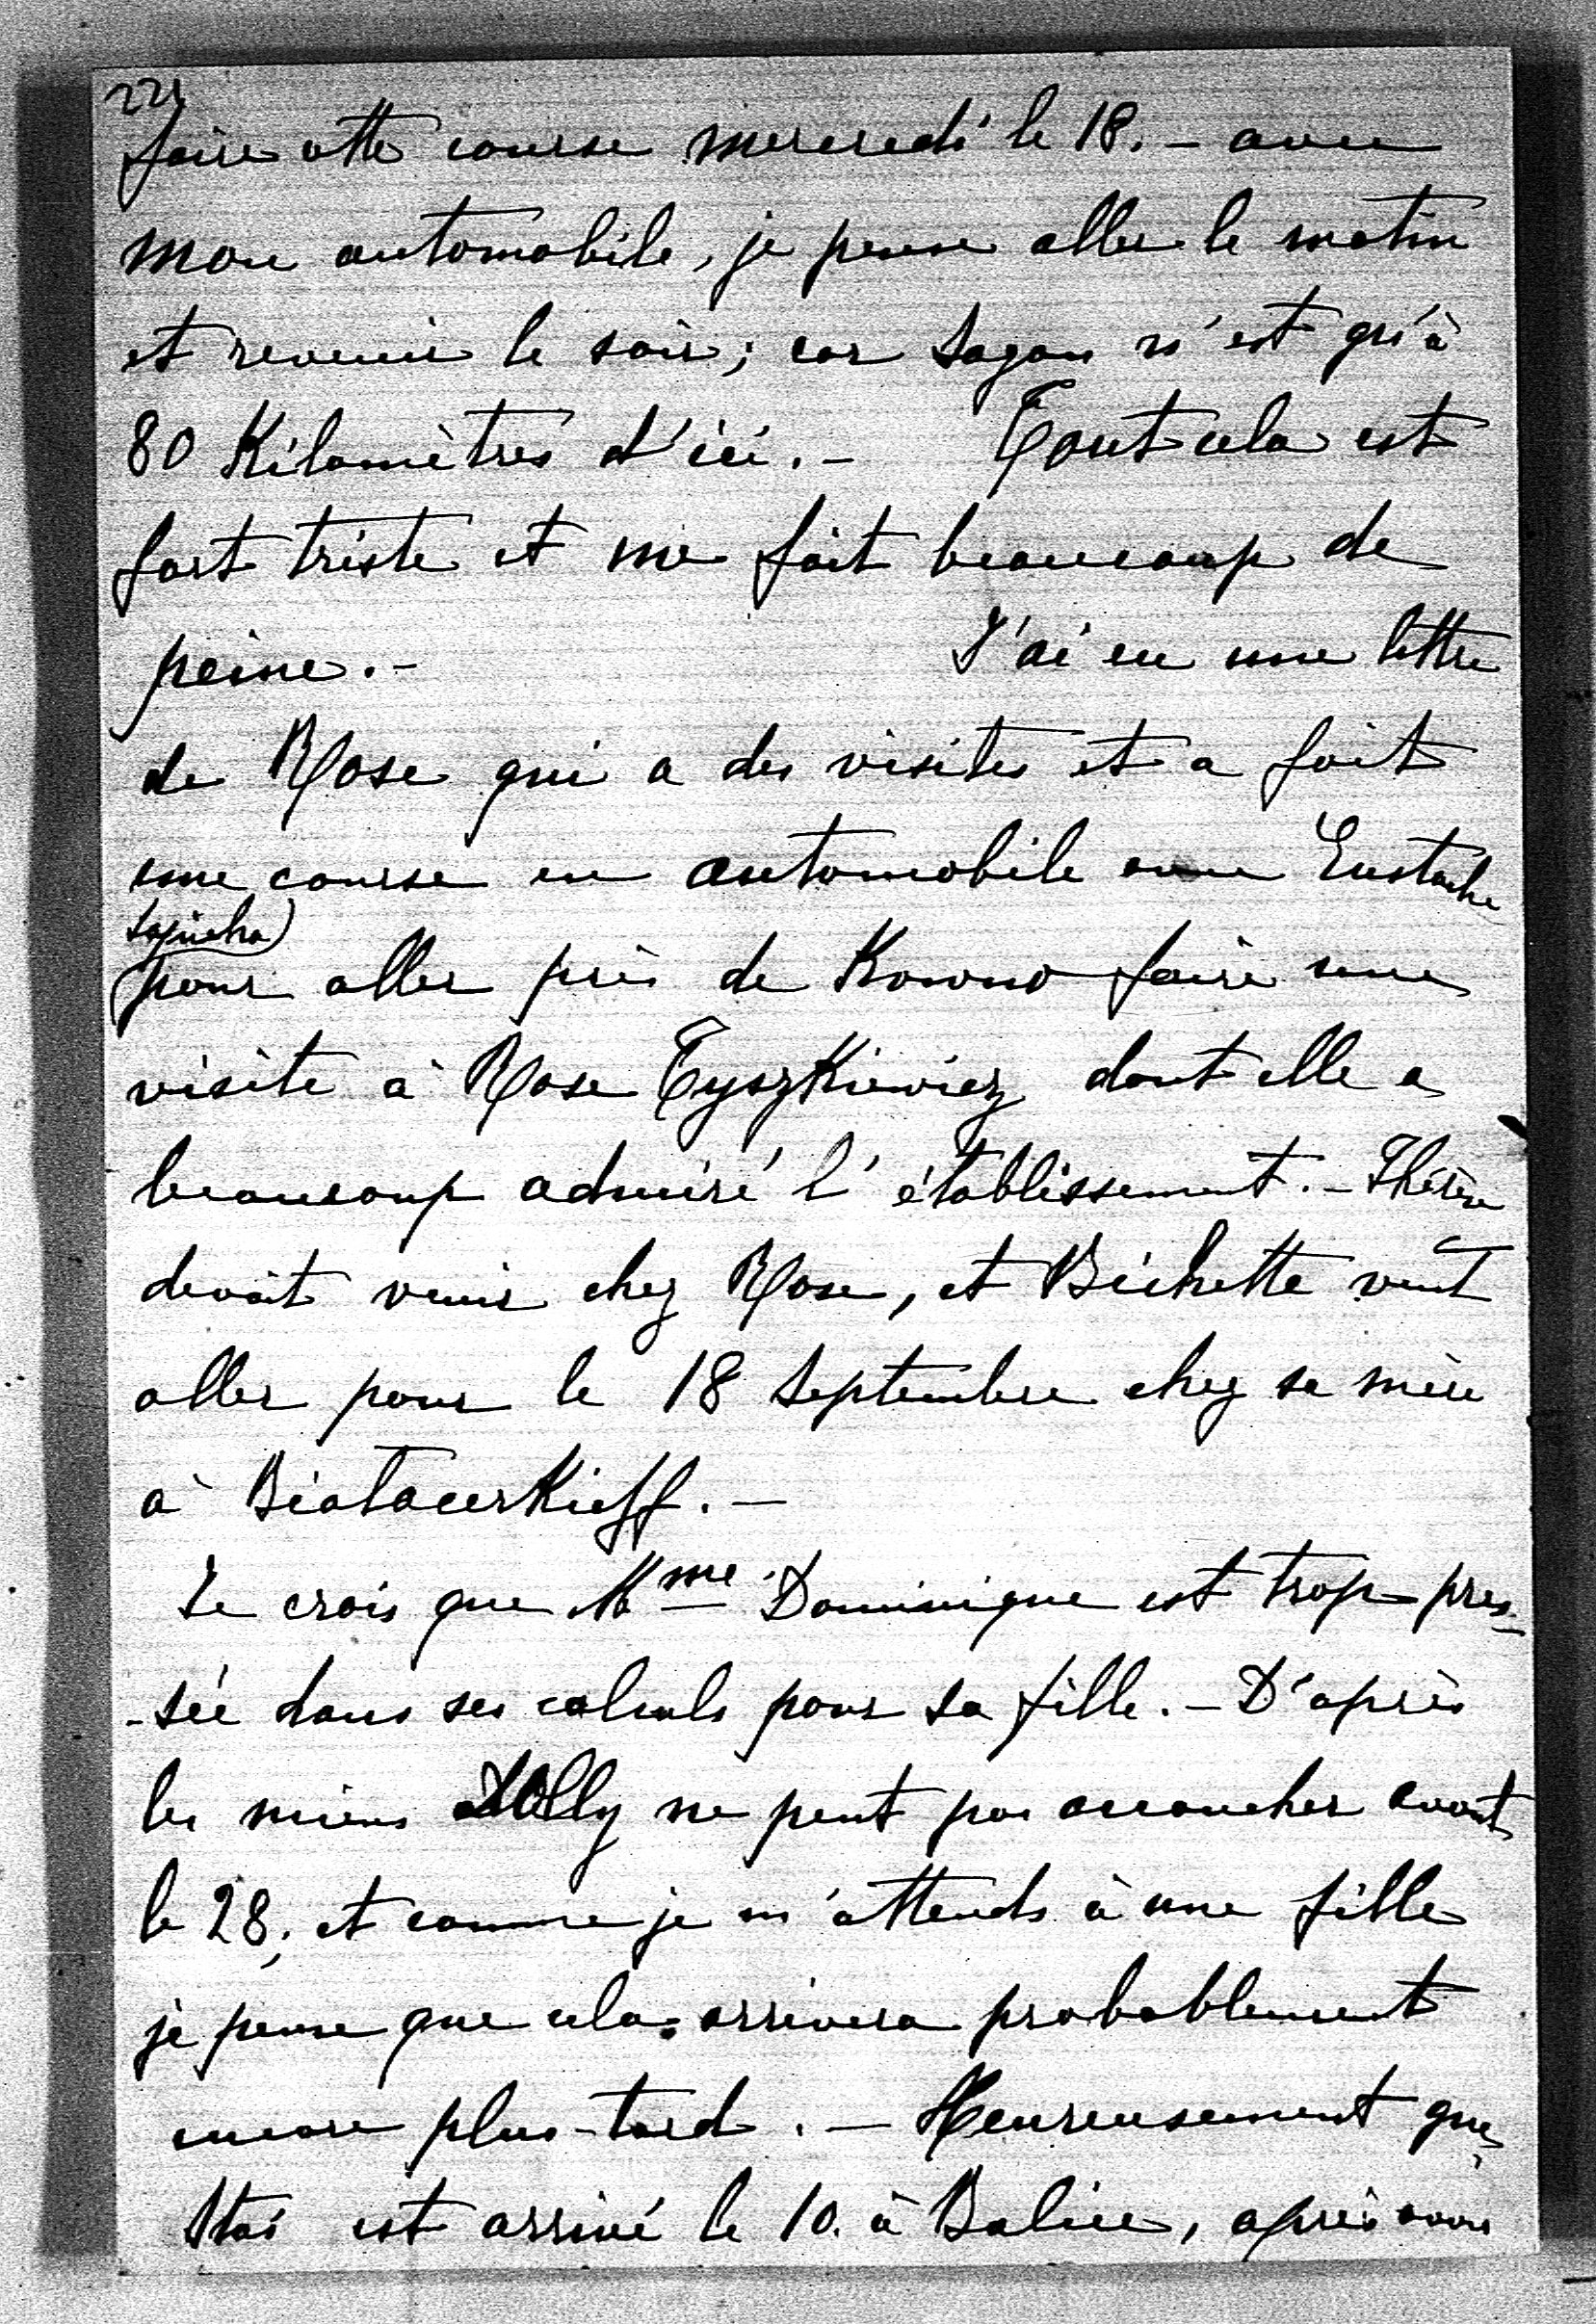 221
faire cette course mercredi le 18. - avec
mon automobile, je pense aller le matin
et revenir le soir; car Sagan n'est qu'à
80 Kilomètres d'ici. - Tout cela est
fort triste et me fait beaucoup de
peine. - J'ai eu une lettre
de Rose qui a des visites et a fait
une course en automobile avec Eustache
Sapieha)
pour aller près de Kowno faire une
visite à Rose Tyszkiewicz dont elle a
beaucoup admiré l'établissement. - Thérèse
devait venir chez Rose, et Bichette veut
aller pour le 18 Septembre chez sa mère
à Biatacerkieff. -
Je crois que Mme Dominique est trop pres-
-sée dans ses calculs pour sa fille. - D'après
les miens Dolly ne peut pas accoucher avant
le 28; et comme je m'attends à une fille
je pense que cela arrivera probablement
encore plus-tard. - Heureusement que
Stas est arrivé le 10. à Balice, après avoir